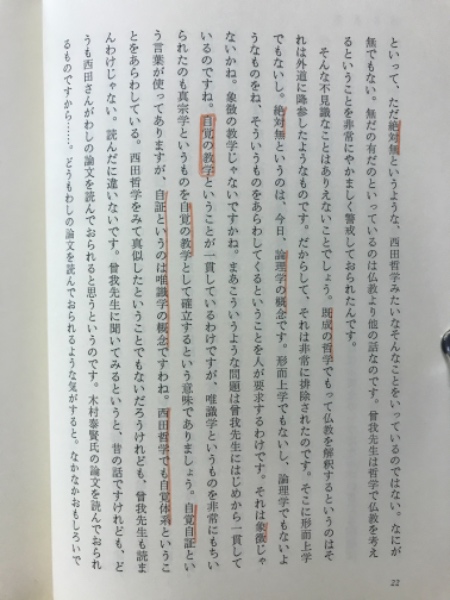 といって、ただ絶対無というような、西田哲学みたいなそんなことをいっているのではない。なにが
無でもない。無だの有だのといっているのは仏教より他の話なのです。曾我先生は哲学で仏教を考え
るということを非常にやかましく警戒しておられたんです。
そんな不見識なことはありえないことでしょう。既成の哲学でもって仏教を解釈するというのはそ
れは外道に降参したようなものです。だからして、それは非常に排除されたのです。そこに形而上学
でもないし。絶対無というのは、今日、論理学の概念です。形而上学でもないし、論理学でもないよ
うなものをね、そういうものをあらわしてくるということを人が要求するわけです。それは象徴じゃ
ないかね。象徴の教学じゃないですかね。まあこういうような問題は曾我先生にはじめから一貫して
いるのですね。自覚の教学ということが一貫しているわけですが、唯識学というものを非常にもちい
られたのも真宗学というものを自覚の教学として確立するという意味でありましょう。自覚自証とい
う言葉が使ってありますが、自証というのは唯識学の概念ですわね。西田哲学でも自覚体系というこ
とをあらわしている。西田哲学をみて真似したということでもないだろうけれども、曾我先生も読ま
んわけじゃない。読んだに違いないです。曾我先生に聞いてみるというと、昔の話ですけれども、ど
うも西田さんがわしの論文を読んでおられると思うというのです。木村泰賢氏の論文を読んでおられ
るものですから……。どうもわしの論文を読んでおられるような気がすると。なかなかおもしろいで
22